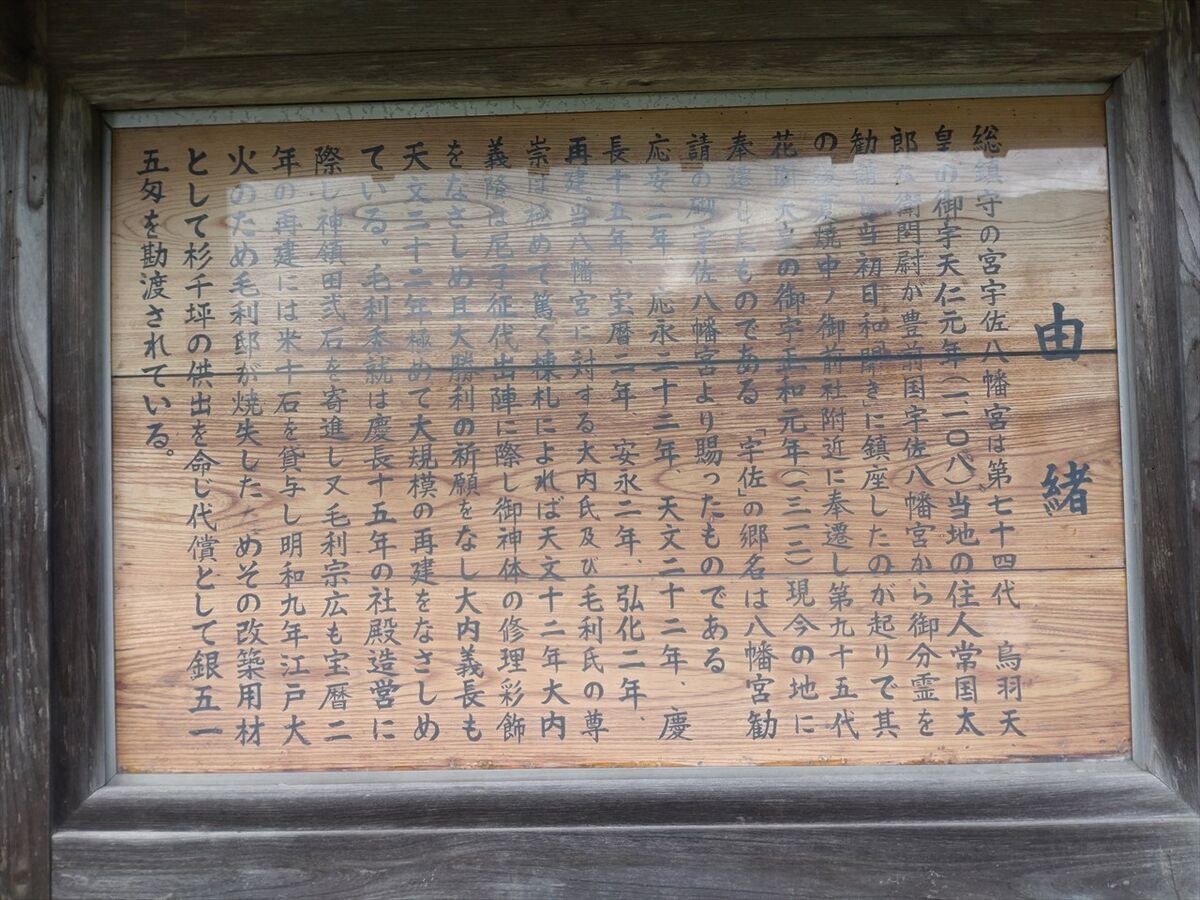 由緒
総鎮守の宮宇佐八幡宮は第七十四代 鳥羽天
皇の御宇天仁元年(一一〇八)当地の住人常国太
郎左衛門尉が豊前国宇佐八幡宮から御分霊を
勧請し当初日和開き」に鎮座したのが起りで其
の後夏焼中ノ御前社附近に奉遷し第九十五代
花園天皇の御宇正和元年(一、三一二)現今の地に
奉遷したものである 「宇佐」の郷名は八幡宮勧
請の砌宇佐八幡宮より賜ったものである
応安二年 応永二十三年、天文二十二年、慶
長十五年 宝暦二年 安永二年、弘化二年、
再建。当八幡宮に対する大内氏及び毛利氏の尊
崇は極めて篤く棟札によれば天文十二年大内
義隆は尼子征代出陣に際し御神体の修理彩飾
をなさしめ且大勝利の祈願をなし大内義長も
天文二十二年極めて大規模の再建をなさしめ
ている。毛利秀就は慶長十五年の社殿造営に
際し神領田弐石を寄進し又毛利宗広も宝暦二
年の再建には米十石を貸与し明和九年江戸大
火のため毛利邸が焼失したためその改築用材
として杉千坪の供出を命じ代償として銀五一
五匁を勘渡されている。